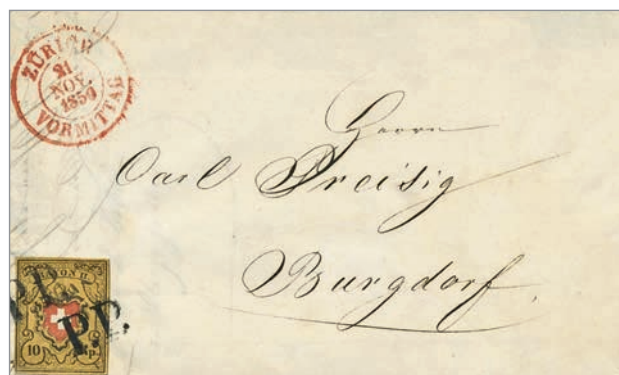 ZÜRICH
21
NOV.
1850
VORMITTAG
Herrn
Carl Dreisig
Burgdorf.
RAYON II.
P.P.
P.P.
10 Rp.